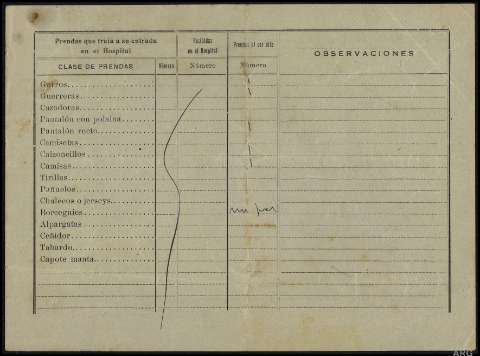 Prendas que traía a su entrada
en el Hospital
en el Hospital
Prendas al ser alta
OBSERVACIONES
CLASE DE PRENDAS
Número
Número
Gorros
Guerreras
Cazadoras
Pantalón con polaina
Pantalón recto
Camisetas
Calzoncillos
Camisas
Tirillas
Pañuelos
Chalecos o jerseys
Borceguíes
un par
Alpargatas
Ceñidor
Tabardo
Capote manta
ARG